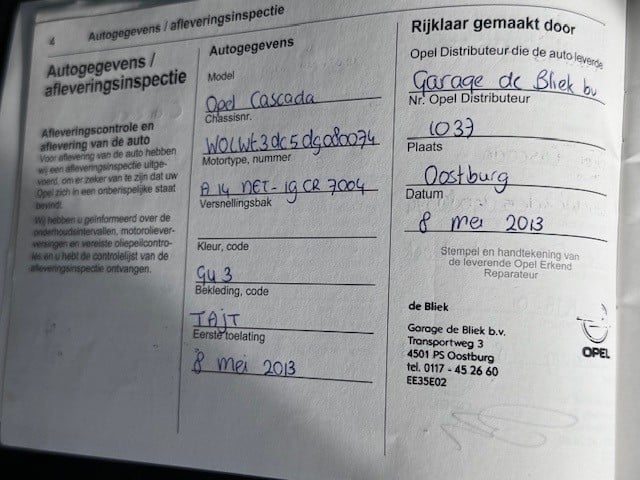 Autogegevens / afleveringsinspectie
Autogegevens /
afleveringsinspectie
Afleveringscontrole en
aflevering van de auto
Voor aflevering van de auto hebben
wij een afleveringsinspectie uitge-
voerd, om er zeker van te zijn dat uw
Opel zich in een onberispelijke staat
bevindt.
Wij hebben u geïnformeerd over de
onderhoudsintervallen, motorolie
verversingen en vereiste oliepeilcontro-
les en u hebt de controlelijst van de
afleveringsinspectie ontvangen.
Autogegevens
Model
Opel Cascada
Chassisnr.
WOLWt3dc5dg080074
Motortype, nummer
A 14 NET-19CR 7004
Versnellingsbak
Kleur, code
Gu 3
Bekleding, code
TAJT
Eerste toelating
8 mei 2013
Rijklaar gemaakt door
Opel Distributeur die de auto leverde
Garage de Bliek bv
Nr. Opel Distributeur
1037
Plaats
Oostburg
Datum
8 mei 2013
Stempel en handtekening van
de leverende Opel Erkend
Reparateur
de Bliek
Garage de Bliek b.v.
Transportweg 3
4501 PS Oostburg
tel. 0117 - 45 26 60
EE35E02
OPEL